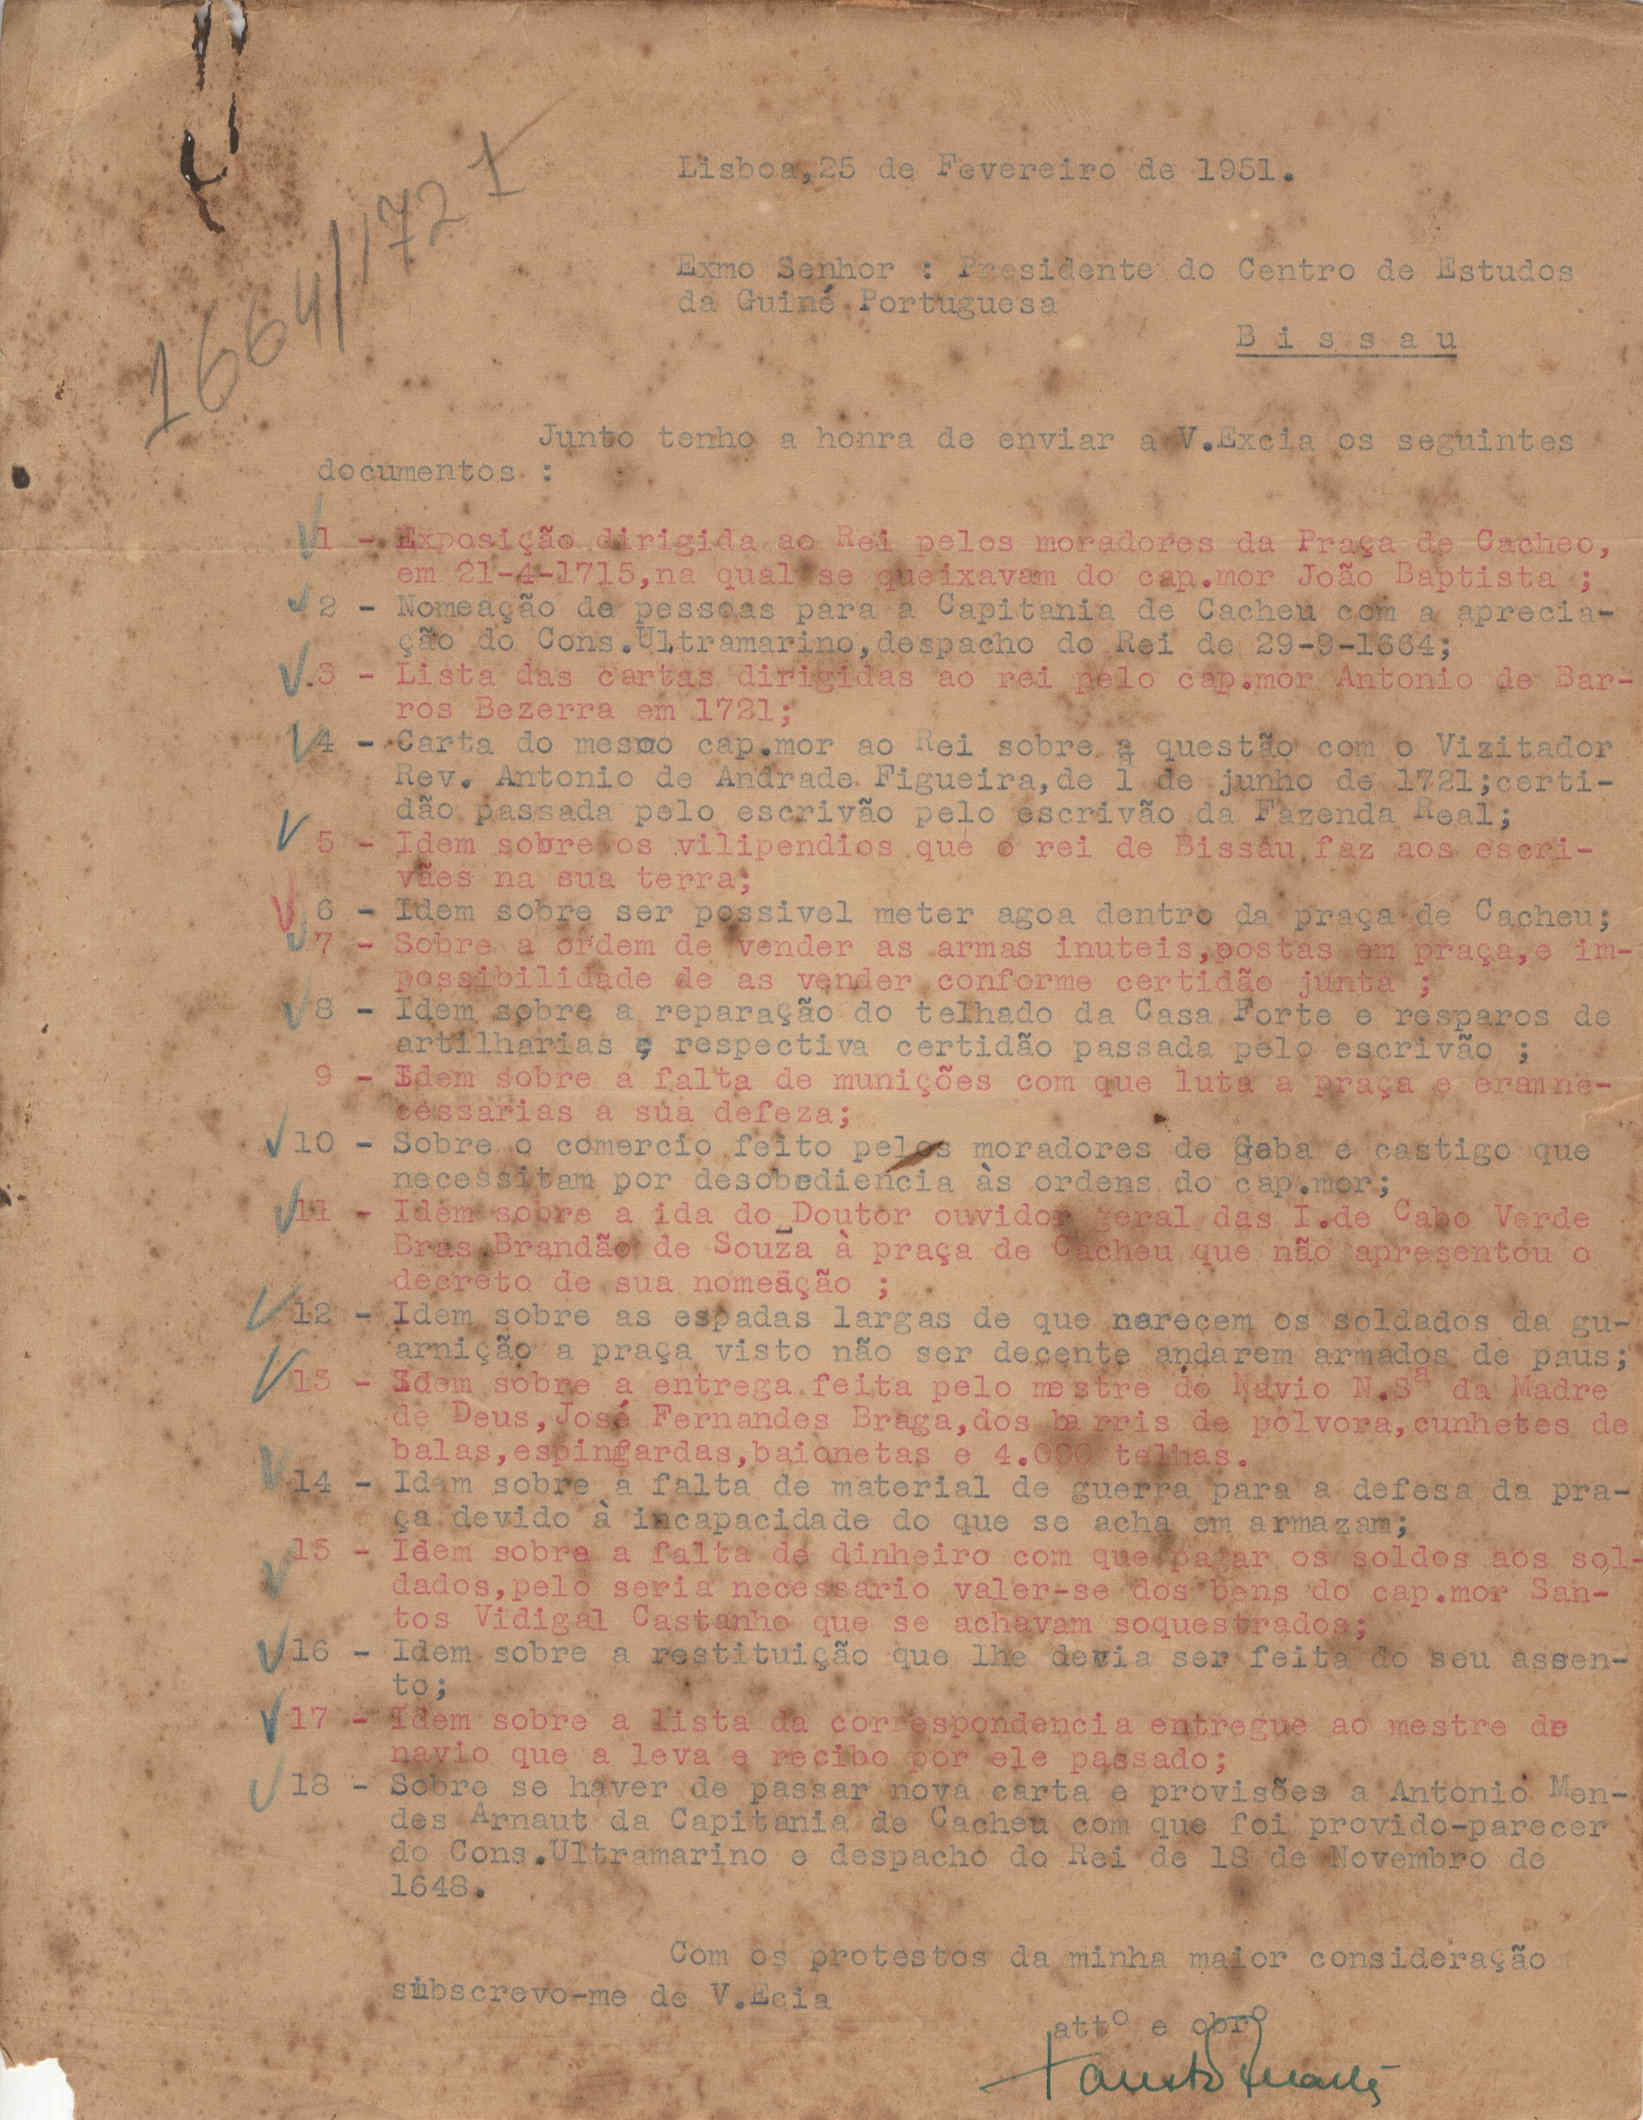 1664/1721
Lisboa,25 de Fevereiro de 1951.
Exmo Senhor : Presidente do Centro de Estudos
da Guiné Portuguesa
B i s s a u
Junto tenho a honra de enviar a V.Excia os seguintes
documentos :
1 - Exposição dirigida ao Rei pelos moradores da Praça de Cacheo,
em 21-4-1715,na qual se queixavam do cap.mor João Baptista ;
2 - Nomeação de pessoas para a Capitania de Cacheu com a aprecia-
ção do Cons.Ultramarino,despacho do Rei de 29-9-1664;
3 - Lista das cartas dirigidas ao rei pelo cap.mor Antonio de Bar-
ros Bezerra em 1721;
4 - Carta do mesmo cap.mor ao Rei sobre a questão com o Vizitador
Rev. Antonio de Andrade Figueira,de 1 de junho de 1721;certi-
dão passada pelo escrivão pelo escrivão da Fazenda Real;
5 - Idem sobre os vilipendios que o rei de Bissau faz aos escri-
vães na sua terra;
6 - Idem sobre ser possivel meter agoa dentro da praça de Cacheu;
7 - Sobre a ordem de vender as armas inuteis,postas em praça,e im-
possibilidade de as vender conforme certidão junta ;
8 - Idem sobre a reparação do telhado da Casa Forte e resparos de
artilharias e respectiva certidão passada pelo escrivão ;
9 - Idem sobre a falta de munições com que luta a praça e eram ne-
cessarias a sua defeza;
10 - Sobre o comercio feito pelos moradores de Geba e castigo que
necessitam por desobediencia às ordens do cap.mor;
11 - Idem sobre a ida do Doutor ouvidor geral das I.de Cabo Verde
Bras Brandão de Souza à praça de Cacheu que não apresentou o
decreto de sua nomeação ;
12 - Idem sobre as espadas largas de que narecem os soldados da gu-
arnição a praça visto não ser decente andarem armados de paus;
13 - Idem sobre a entrega feita pelo mestre do Navio N.Sª da Madre
de Deus,José Fernandes Braga,dos barris de polvora,cunhetes de
balas,espingardas,baionetas e 4.000 telhas.
14 - Idem sobre a falta de material de guerra para a defesa da pra-
ça devido à incapacidade do que se acha em armazam;
15 - Idem sobre a falta de dinheiro com que pagar os soldos aos sol-
dados,pelo seria necessario valer-se dos bens do cap.mor San-
tos Vidigal Castanho que se achavam soquestrados;
16 - Idem sobre a restituição que lhe devia ser feita do seu assen-
to;
17 - Idem sobre a lista da correspondencia entregue ao mestre do
navio que a leva e recibo por ele passado;
18 - Sobre se haver de passar nova carta e provisões a Antonio Men-
des Arnaut da Capitania de Cacheu com que foi provido-parecer
do Cons.Ultramarino e despacho do Rei de 18 de Novembro de
1648.
Com os protestos da minha maior consideração
subscrevo-me de V.Ecia
attº e obrº
Fausto Duarte